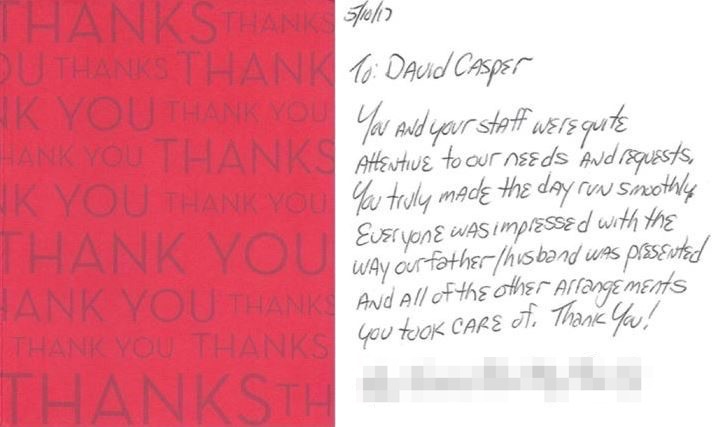 THANKS THANKS
OU THANKS THANK
NK YOU THANK YOU
HANK YOU THANKS
NK YOU THANK YOU
THANK YOU
HANK YOU THANKS
THANK YOU THANKS
THANKS TH
5/10/17
To: David Casper
You and your staff were quite
attentive to our needs and requests.
You truly made the day run smoothly.
Everyone was impressed with the
way our father/husband was presented
and all of the other arrangements
you took care of. Thank You!